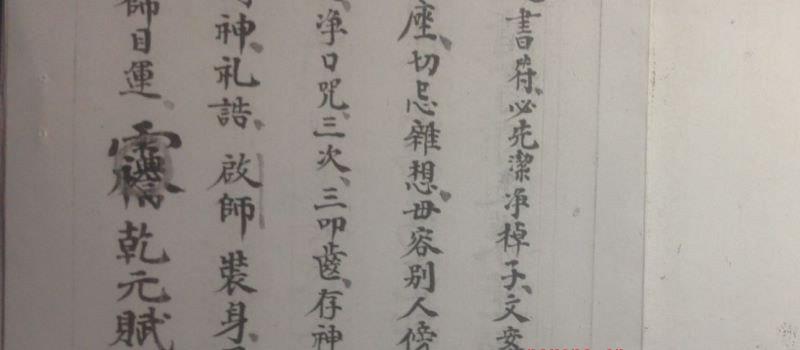 書符、必先潔净棹子、文案
座、切忌雜想、毋容别人傍
净口咒、三次、三叩齒、存神
神、礼誥、啟師 裝身、
師目運、 乾元賦